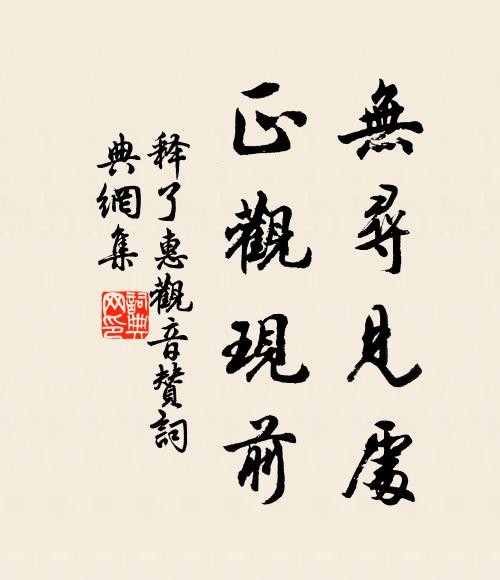 無尋見處
正觀現前
释了惠觀音賛詞
典網集
詞典网印